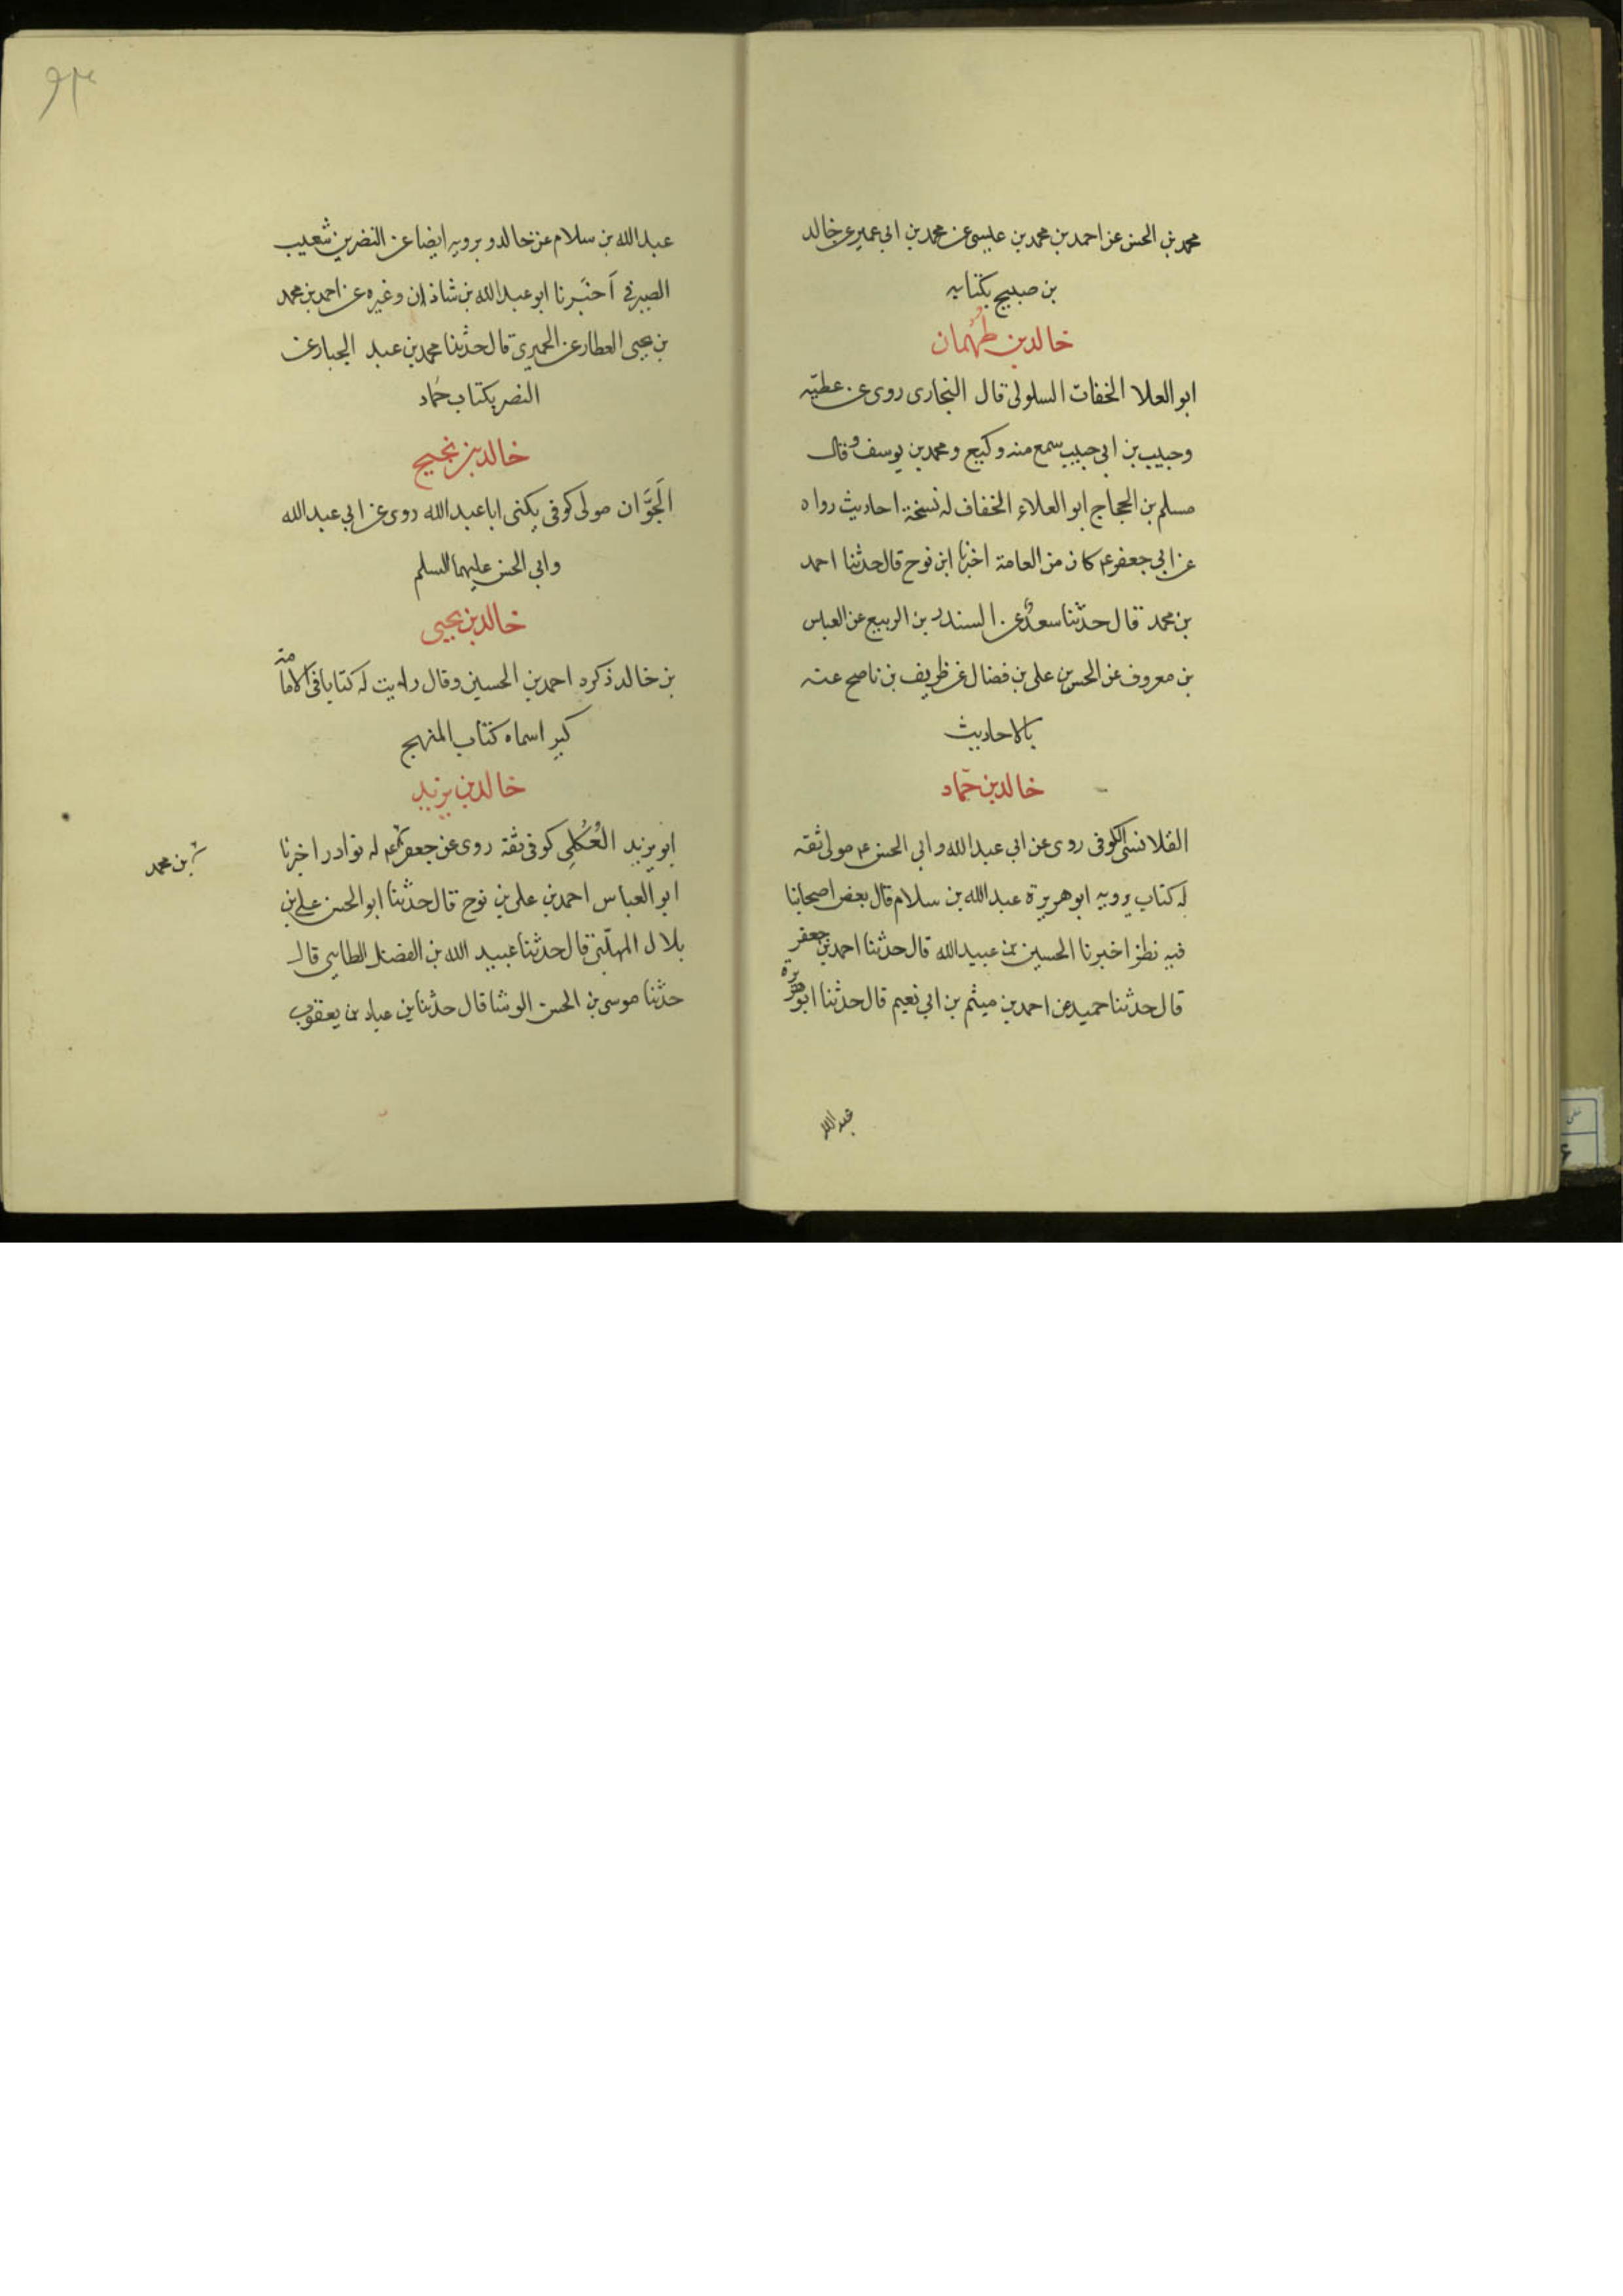 محمد بن الحسن عن احمد بن محمد بن عيسى عن محمد بن ابى عمير عن خالد
بن صبيح بكتابه
خالد بن طهمان
ابو العلا الخفات السلولى قال البخارى روى عن عطيّه
وحبيب بن ابى حبيب سمع منه وكيع ومحمد بن يوسف وقال
مسلم بن الحجاج ابو العلاء الخفاف له نسخة احاديث رواه
عن ابى جعفر عم كان من العامة اخبرنا ابن نوح قال حدثنا احمد
بن محمد قال حدثنا سعد عن السندى بن الربيع عن العباس
بن معروف عن الحسن بن على بن فضال عن ظريف بن ناصح عنه
بالاحاديث
خالد بن حمّاد
القلانسى الكوفى روى عن ابى عبد الله وابى الحسن عم مولى ثقه
له كتاب يرويه ابو هريرة عبد الله بن سلام قال بعض اصحابنا
فيه نظر اخبرنا الحسين بن عبيد الله قال حدثنا احمد بن جعفر
قال حدثنا حميد عن احمد بن ميثم بن ابى نعيم قال حدثنا ابو هريرة
عبد الله
٩٣
عبد الله بن سلام عن خالد و يرويه ايضا عن النضر بن شعيب
الصيرفى اَخبَرنا ابو عبد الله بن شاذان وغيره عن احمد بن محمد
بن يحيى العطار عن الحميرى قال حدثنا محمد بن عبد الجبار عن
النضر بكتاب حمّاد
خالد بن نجيح
الجَوَّان مولى كوفى يكنى ابا عبد الله روى عن ابى عبد الله
وابى الحسن عليهما السلم
خالد بن يحيى
بن خالد ذكره احمد بن الحسين وقال رايت له كتابا فى الامامة
كبير اسماه كتاب المنهج
خالد بن يزيد
ابو يزيد العُكلِى كوفى ثقة روى عن جعفر عم له نوادر اخبرنا
بن محمد
ابو العباس احمد بن على بن نوح قال حدثنا ابو الحسن على بن
بلال المهلّبى قال حدثنا عبيد الله بن الفضل الطايى قال
حدثنا موسى بن الحسن الوشا قال حدثنا بن عباد بن يعقوب